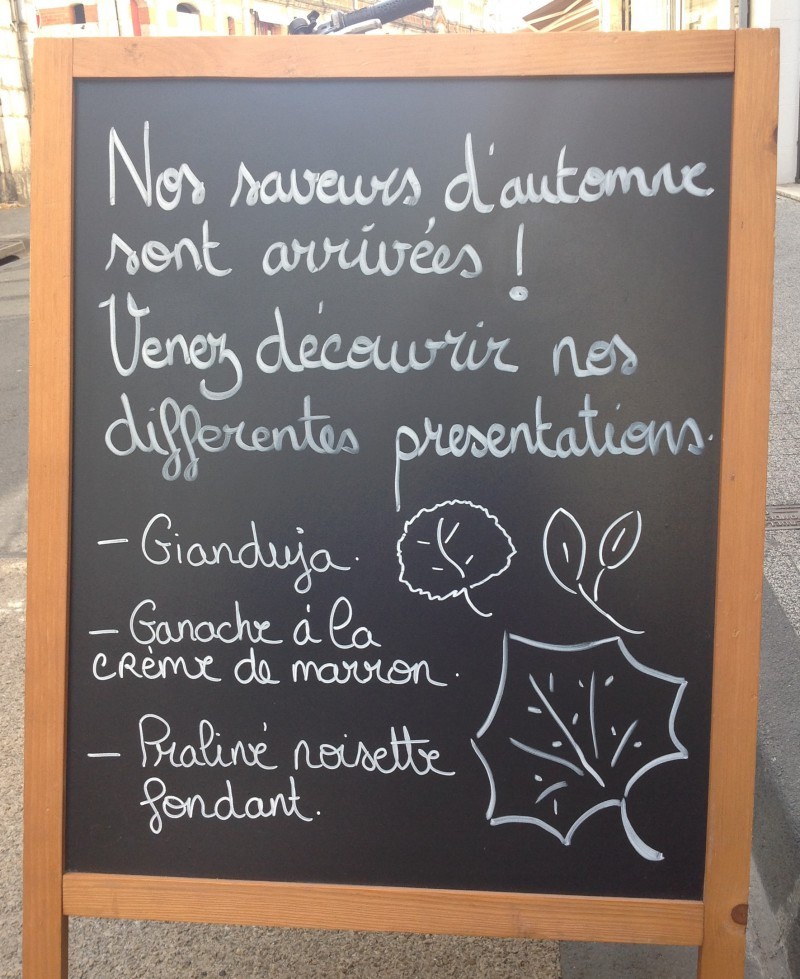 Nos saveurs d'automne
sont arrivées !
Venez découvrir nos
differentes presentations.
- Gianduja.
- Ganache à la
crème de marron.
- Praliné noisette
fondant.